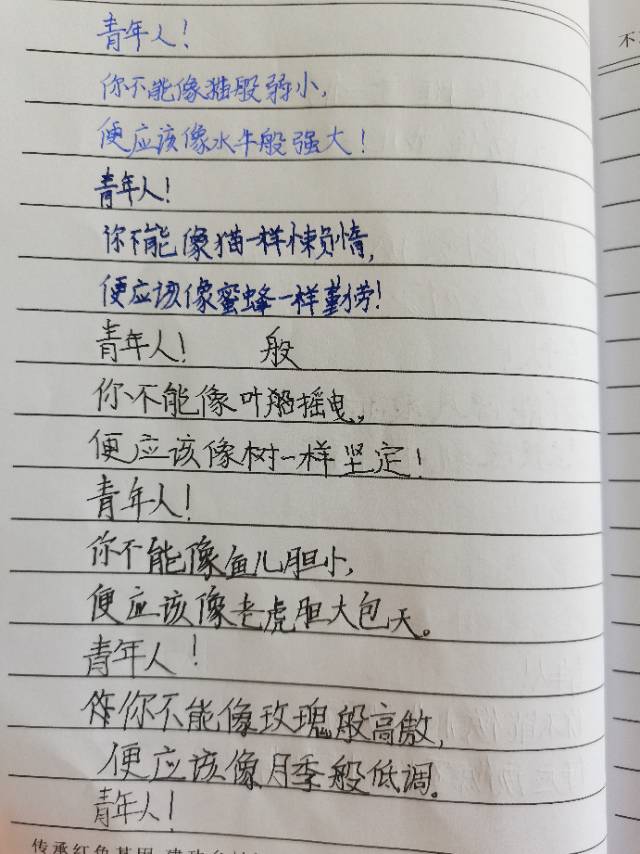 青年人！
你不能像猫般弱小，
便应该像水牛般强大！
青年人！
你不能像猫一样懒惰，
便应该像蜜蜂一样勤劳！
青年人！ 般
你不能像叶般摇曳。
便应该像树一样坚定！
青年人！
你不能像鱼儿胆小，
便应该像老虎胆大包天。
青年人！
你不能像玫瑰般高傲，
便应该像月季般低调。
青年人！
传承红色基因
不